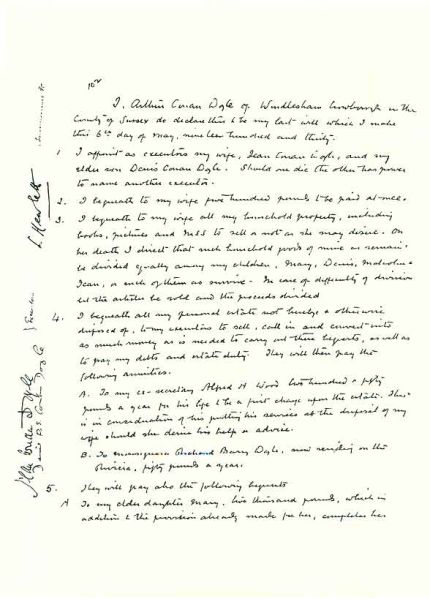 I, Arthur Conan Doyle of Windlesham Crowborough in the
County of Sussex do declare this to be my last will which I make
this 6th day of May, nineteen hundred and thirty.
1 I appoint as executors my wife, Jean Conan Doyle, and my
elder son Denis Conan Doyle. Should one die the other has power
to name another executor.
2. I bequeath to my wife five hundred pounds to be paid at once.
3. I bequeath to my wife all my household property, including
books, pictures and MSS to sell or not as she may desire. On
her death I direct that such household goods of mine as remain
be divided equally among my children, Mary, Denis, Malcolm &
Jean, or such of them as survive. In case of difficulty of division
let the articles be sold and the proceeds divided
4. I bequeath all my personal estate not hereby or otherwise
disposed of, to my executors to sell, call in and convert into
as much money as is needed to carry out these bequests, as well as
to pay my debts and estate duty. They will then pay the
following annuities.
A. To my ex-secretary Alfred H Wood two hundred & fifty
pounds a year for his life to be a first charge upon the estate. This
is in consideration of his putting his services at the disposal of my
wife should she desire his help or advice.
B. To Barry Doyle, now residing on the
Riviera, fifty pounds a year.
5. They will pay also the following bequests
A To my elder daughter Mary, two thousand pounds, which in
addition to the provision already made for her, completes her